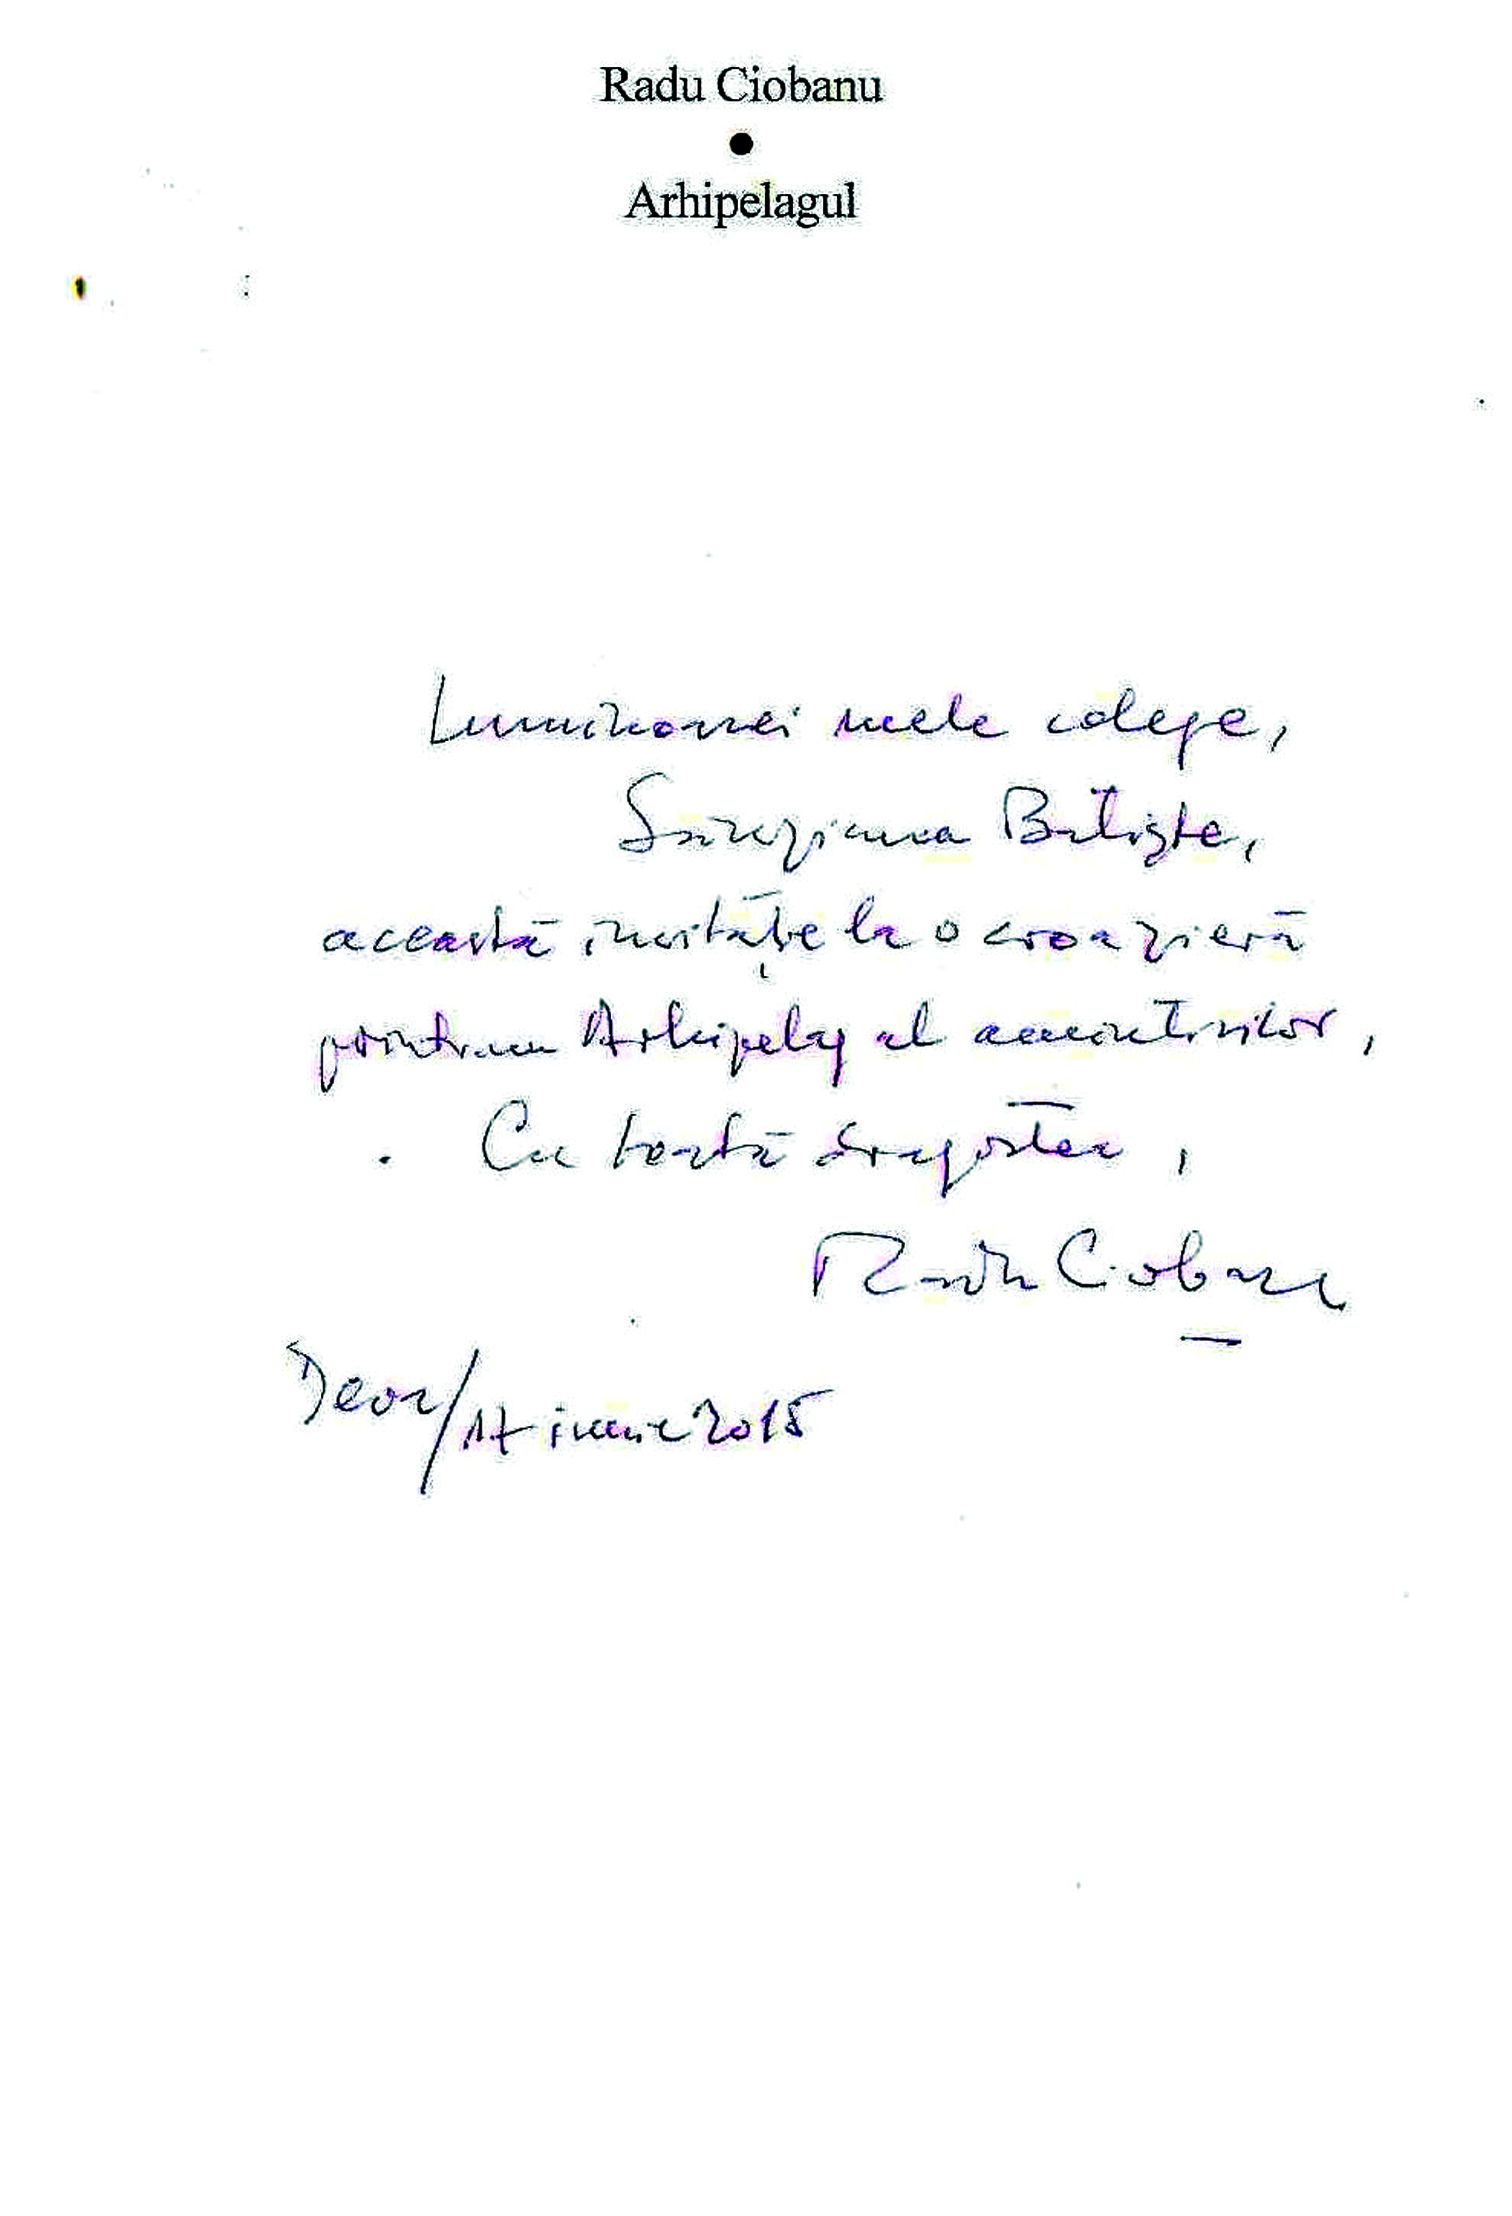 Radu Ciobanu
Arhipelagul
Luminoasei mele colege,
Sânziana Batiște,
această invitație la o croazieră
printr-un Arhipelag al amintirilor,
Cu toată dragostea,
Radu Ciobanu
Deva/17 iunie 2015